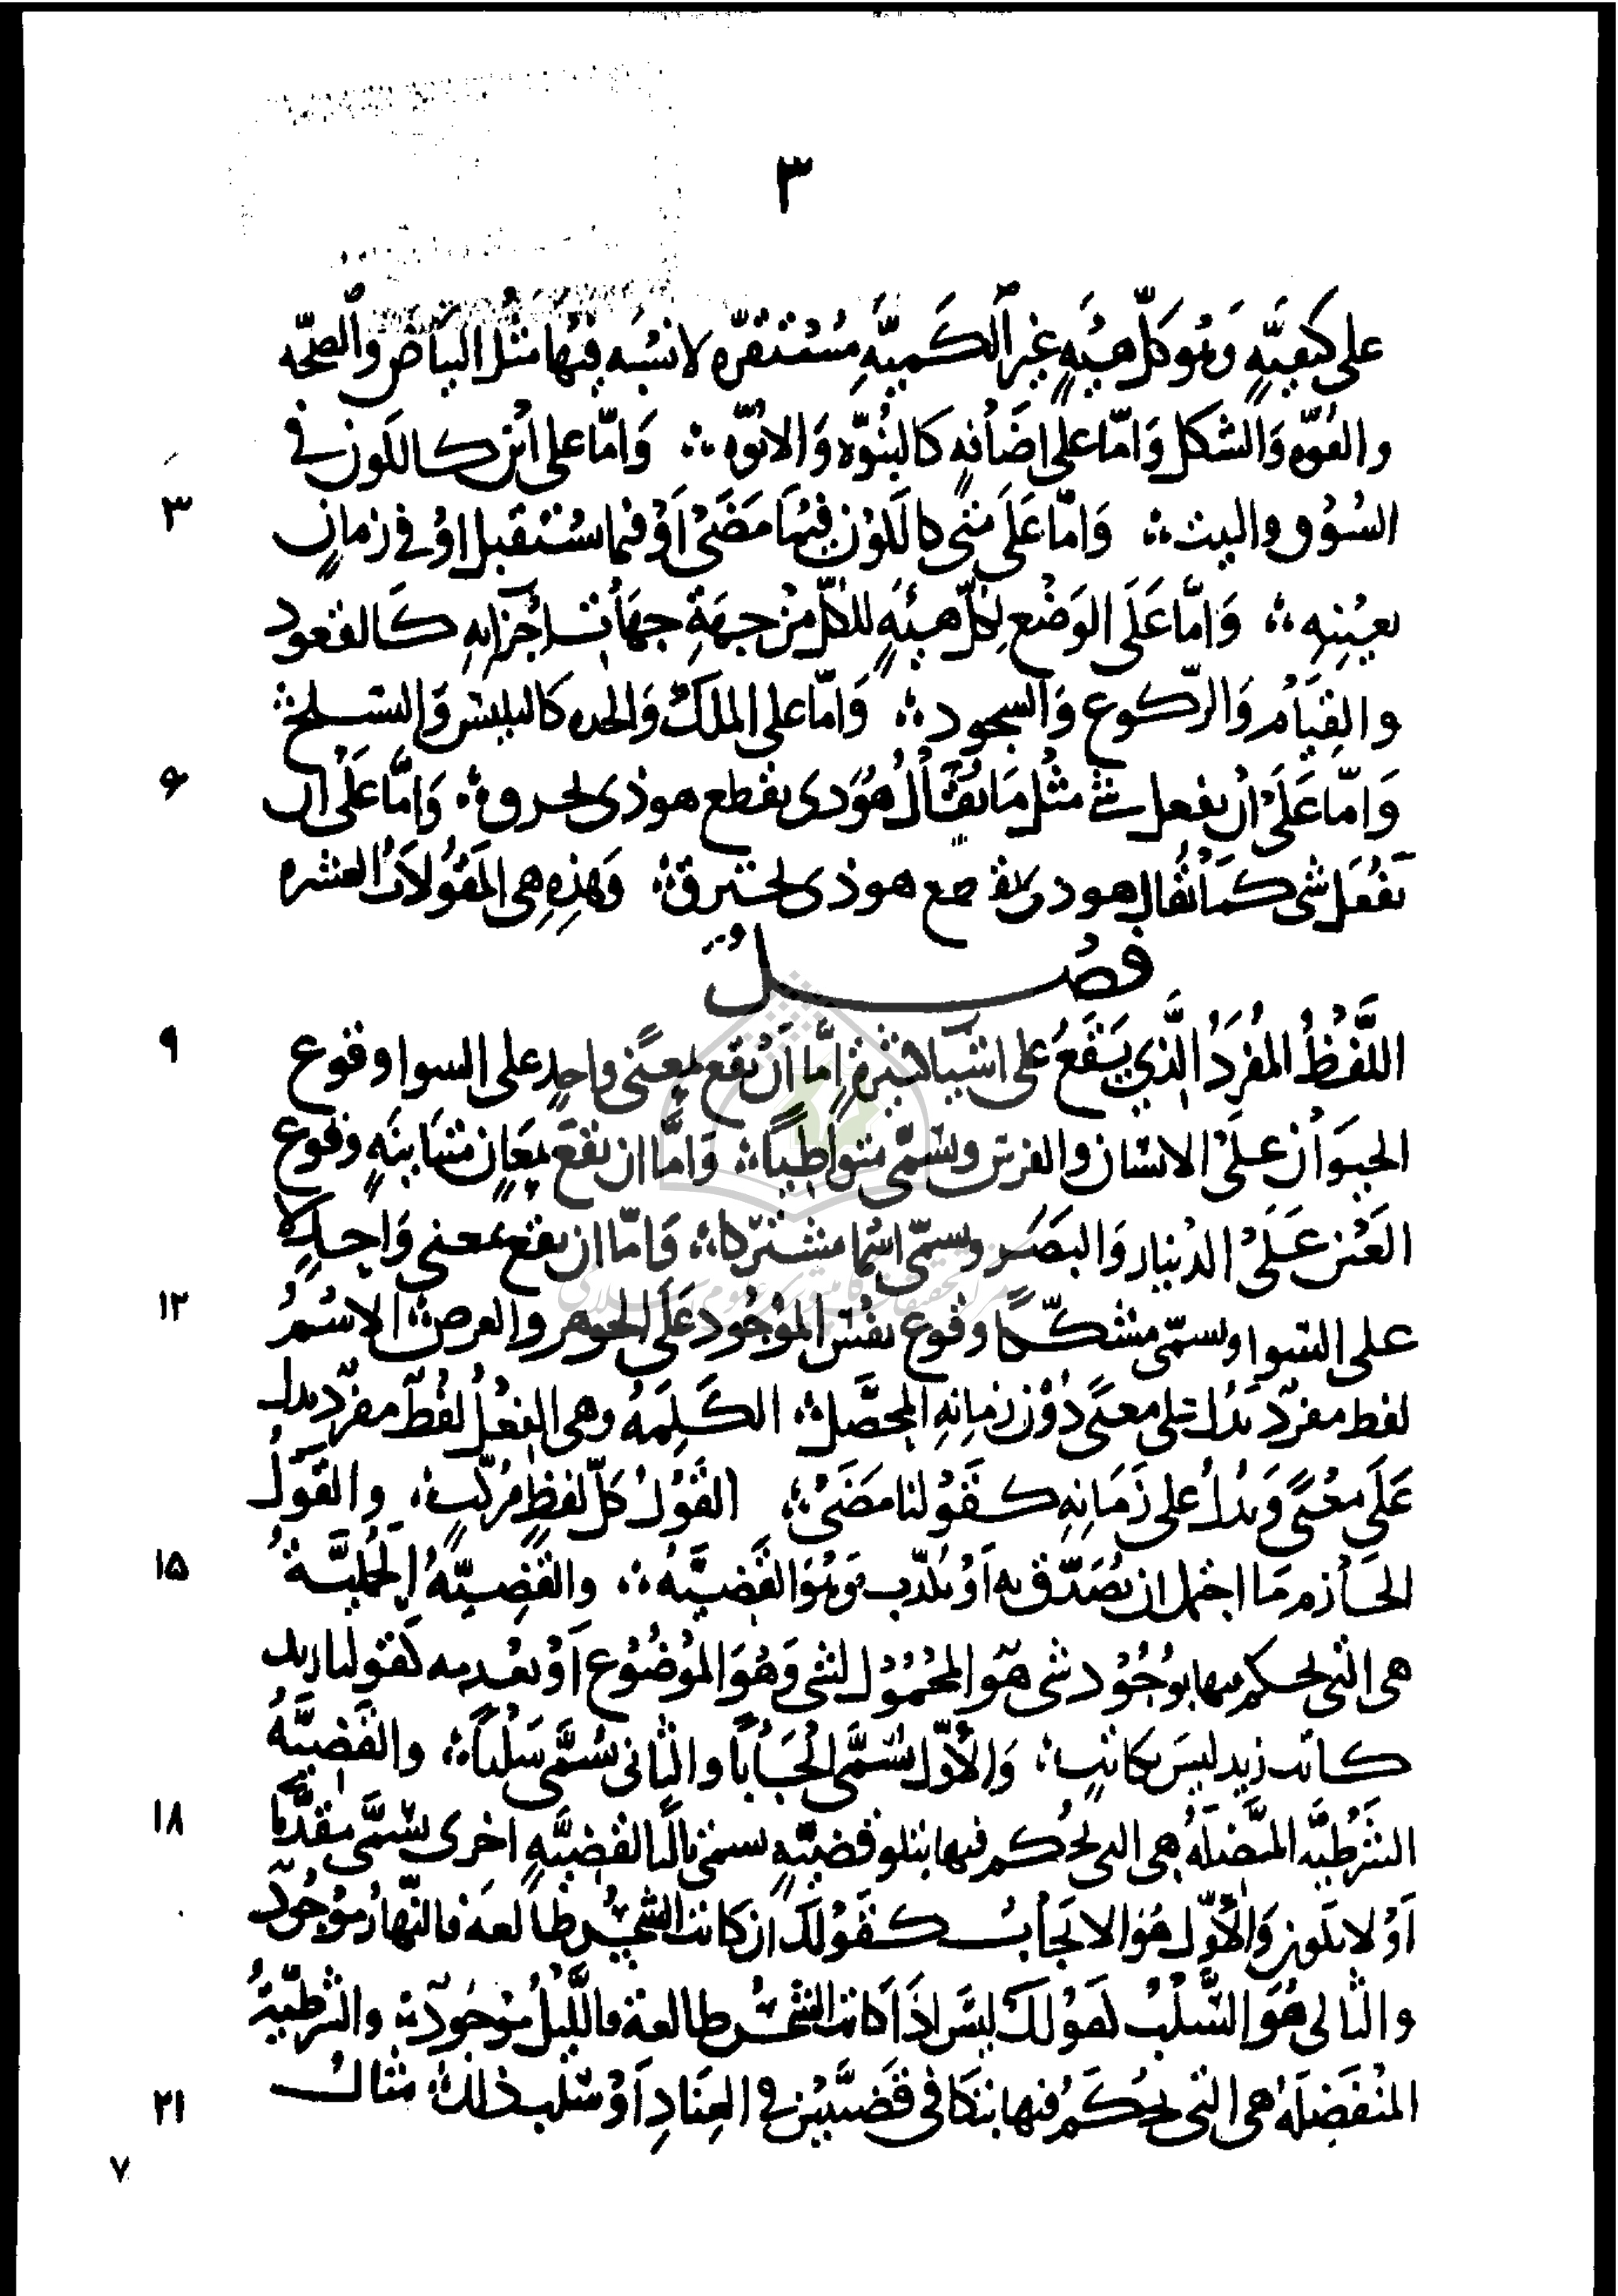 ٣
على كيفيّةٍ وَهُو كلّ هيئةٍ غير الكَميّةِ مستقرّه لا نسبَه فيهَا مثل البيَاض والصحّه
والقوّه وَالشكل وَامّا على اضَافهٍ كالبنُوّه وَالابوّه ؞ وَامّا على اَين كالكون في
٣ السوُق والبيت ؞ وَامّا عَلَى متى كالكوْن فيمَا مَضَى اَوْ فيما يستقبل اوْ في زمانٍ
بعيْنِهِ ؞ وَامّا عَلَى الوَضْع لكلّ هيئهٍ للكلّ منْ جهَةِ جهَات اجْزَايهِ كَالقعود
والقِيَام وَالرّكوع وَالسجود ؞ وَامّا على الملك وَالجده كالتلبس وَالتسلح ؞
۶ وَامّا عَلَى انْ يفعل شئ مثْل مَا يُقَالُ هُوَ ذى يقطع هو ذى يحرق ؞ وَامَّا عَلَى ان
يَنفعَل شى كمَا يُقَال هو ذى ينقطع هو ذى يحترق ؞ وَهَذِهِ هى المقوُلاَت العشره
فصْــل
٩ اللَّفْظُ المُفرَدُ الَّذِي يَقَعُ على اشيَا كثيرةٍ اِمَّا اَنْ يقَع بمعنًى واحدٍ على السوا وقوع
الحيوَان عَلَى الانسَان والفرس ويسَمّى متواطيًا ؞ وَامَّا ان يقَع بمعَانٍ متبَاينَهٍ وقوع
العَيْن عَلَى الدينار وَالبصَر ويسمّى اسمًا مشتركا ؞ وَامّا ان يقَع بمعنى وَاحدٍ لا
١٢ على السّوا ويسمّى مشككًا وقوع نفس الموْجُود عَلَى الجوهر والعرض ؞ الاسْمُ
لفط مفرد يَدُل على معنًى دُوْن زمَانِهِ المحصَّل ؞ الكَلِمَهُ وهى الفِعْلُ لفْط مفرد يدل
عَلَى معْنًى وَيدُلُ على زَمَانِهِ كقَوْلنا مَضَى ؞ القَوْلُ كلّ لفظٍ مُركّبٍ ؞ والقَوْلُ
١۵ الجَازم مَا احتمل ان يُصَدّق به اَوْ يكذّب وَهُوَ القَضيَّهُ ؞ والقَضِيّهُ الحَمليَّةُ
هى التى يحكم فيها بوُجُوْد شى هُوَ المحْمُوْل لشى وَهُوَ الموْضُوْع اَوْ بعْدمه كقولنا زيد
كاتب زيد ليسَ بكاتب ؞ وَالأوّل يُسَمَّى ايجَابًا والثانى يُسَمَّى سَلْبًا ؞ والقَضيَّهُ
١٨ الشَرْطيَّه المتَّصلَهُ هى التى يُحْكم فيها بتلو قضيّهٍ تسمى تاليًا لقضيَّهٍ اخرى تسَمَّى مقدَّمًا
اَوْ لا يكون وَالأوّل هُوَ الايجَاب كقَوْلكَ ان كانت الشمْس طالعه فالنّهارُ موْجُود
والثانى هُوَ السَّلْب كقولكَ ليسَ اذَا كانت الشمْس طالعة فالليْل موْجُود ؞ والشرطيّةُ
٢١ المنْفصلَهُ هى التى يُحكَم فيها بتكَافى قَضيَّتيْن في العِنَادِ اَوْ سلب ذلك ؞ مثال
٧